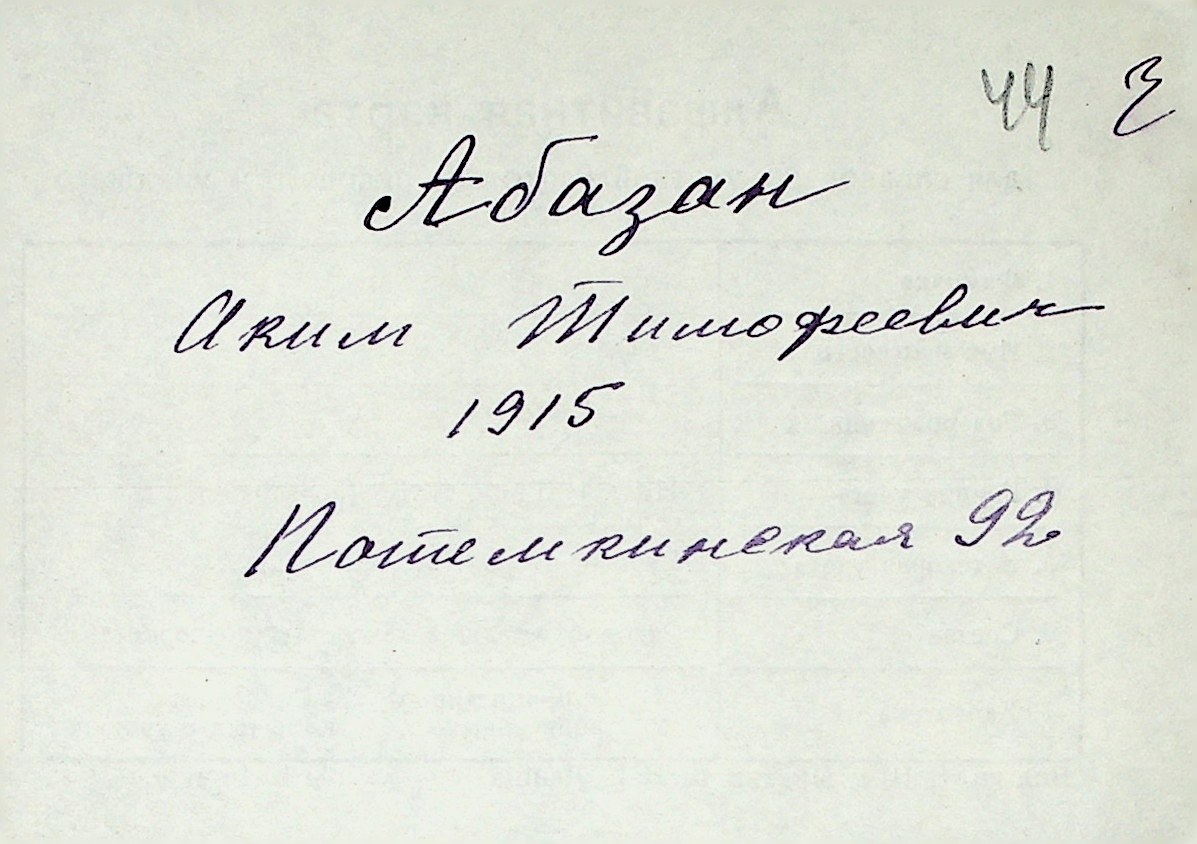 44 3
Абазан
Аким Тимофеевич
1915
Потемкинская 92